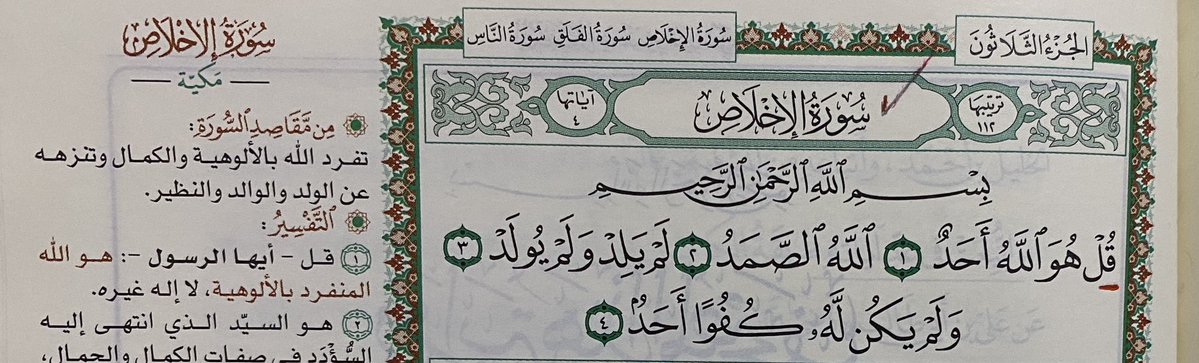 الجُزْءُ الثَّلَاثُونَ
سُورَةُ الإِخْلَاصِ سُورَةُ الفَلَقِ سُورَةُ النَّاسِ
ترتيبها
١١٢
سُورَةُ الإِخْلَاصِ
آياتها
٤
بِسْمِ ٱللَّهِ ٱلرَّحْمَٰنِ ٱلرَّحِيمِ
قُلْ هُوَ ٱللَّهُ أَحَدٌ ١ ٱللَّهُ ٱلصَّمَدُ ٢ لَمْ يَلِدْ وَلَمْ يُولَدْ ٣
وَلَمْ يَكُن لَّهُۥ كُفُوًا أَحَدٌۢ ٤
سُورَةُ الإِخْلَاصِ
مَكيّة
مِن مَّقَاصِدِ ٱلسُّورَةِ:
تفرد الله بالألوهية والكمال وتنزهه
عن الولد والوالد والنظير.
ٱلتَّفْسِيرُ:
١ قل - أيها الرسول -: هو الله
المنفرد بالألوهية، لا إله غيره.
٢ هو السيّد الذي انتهى إليه
السُّؤْدَد في صفات الكمال والجمال،